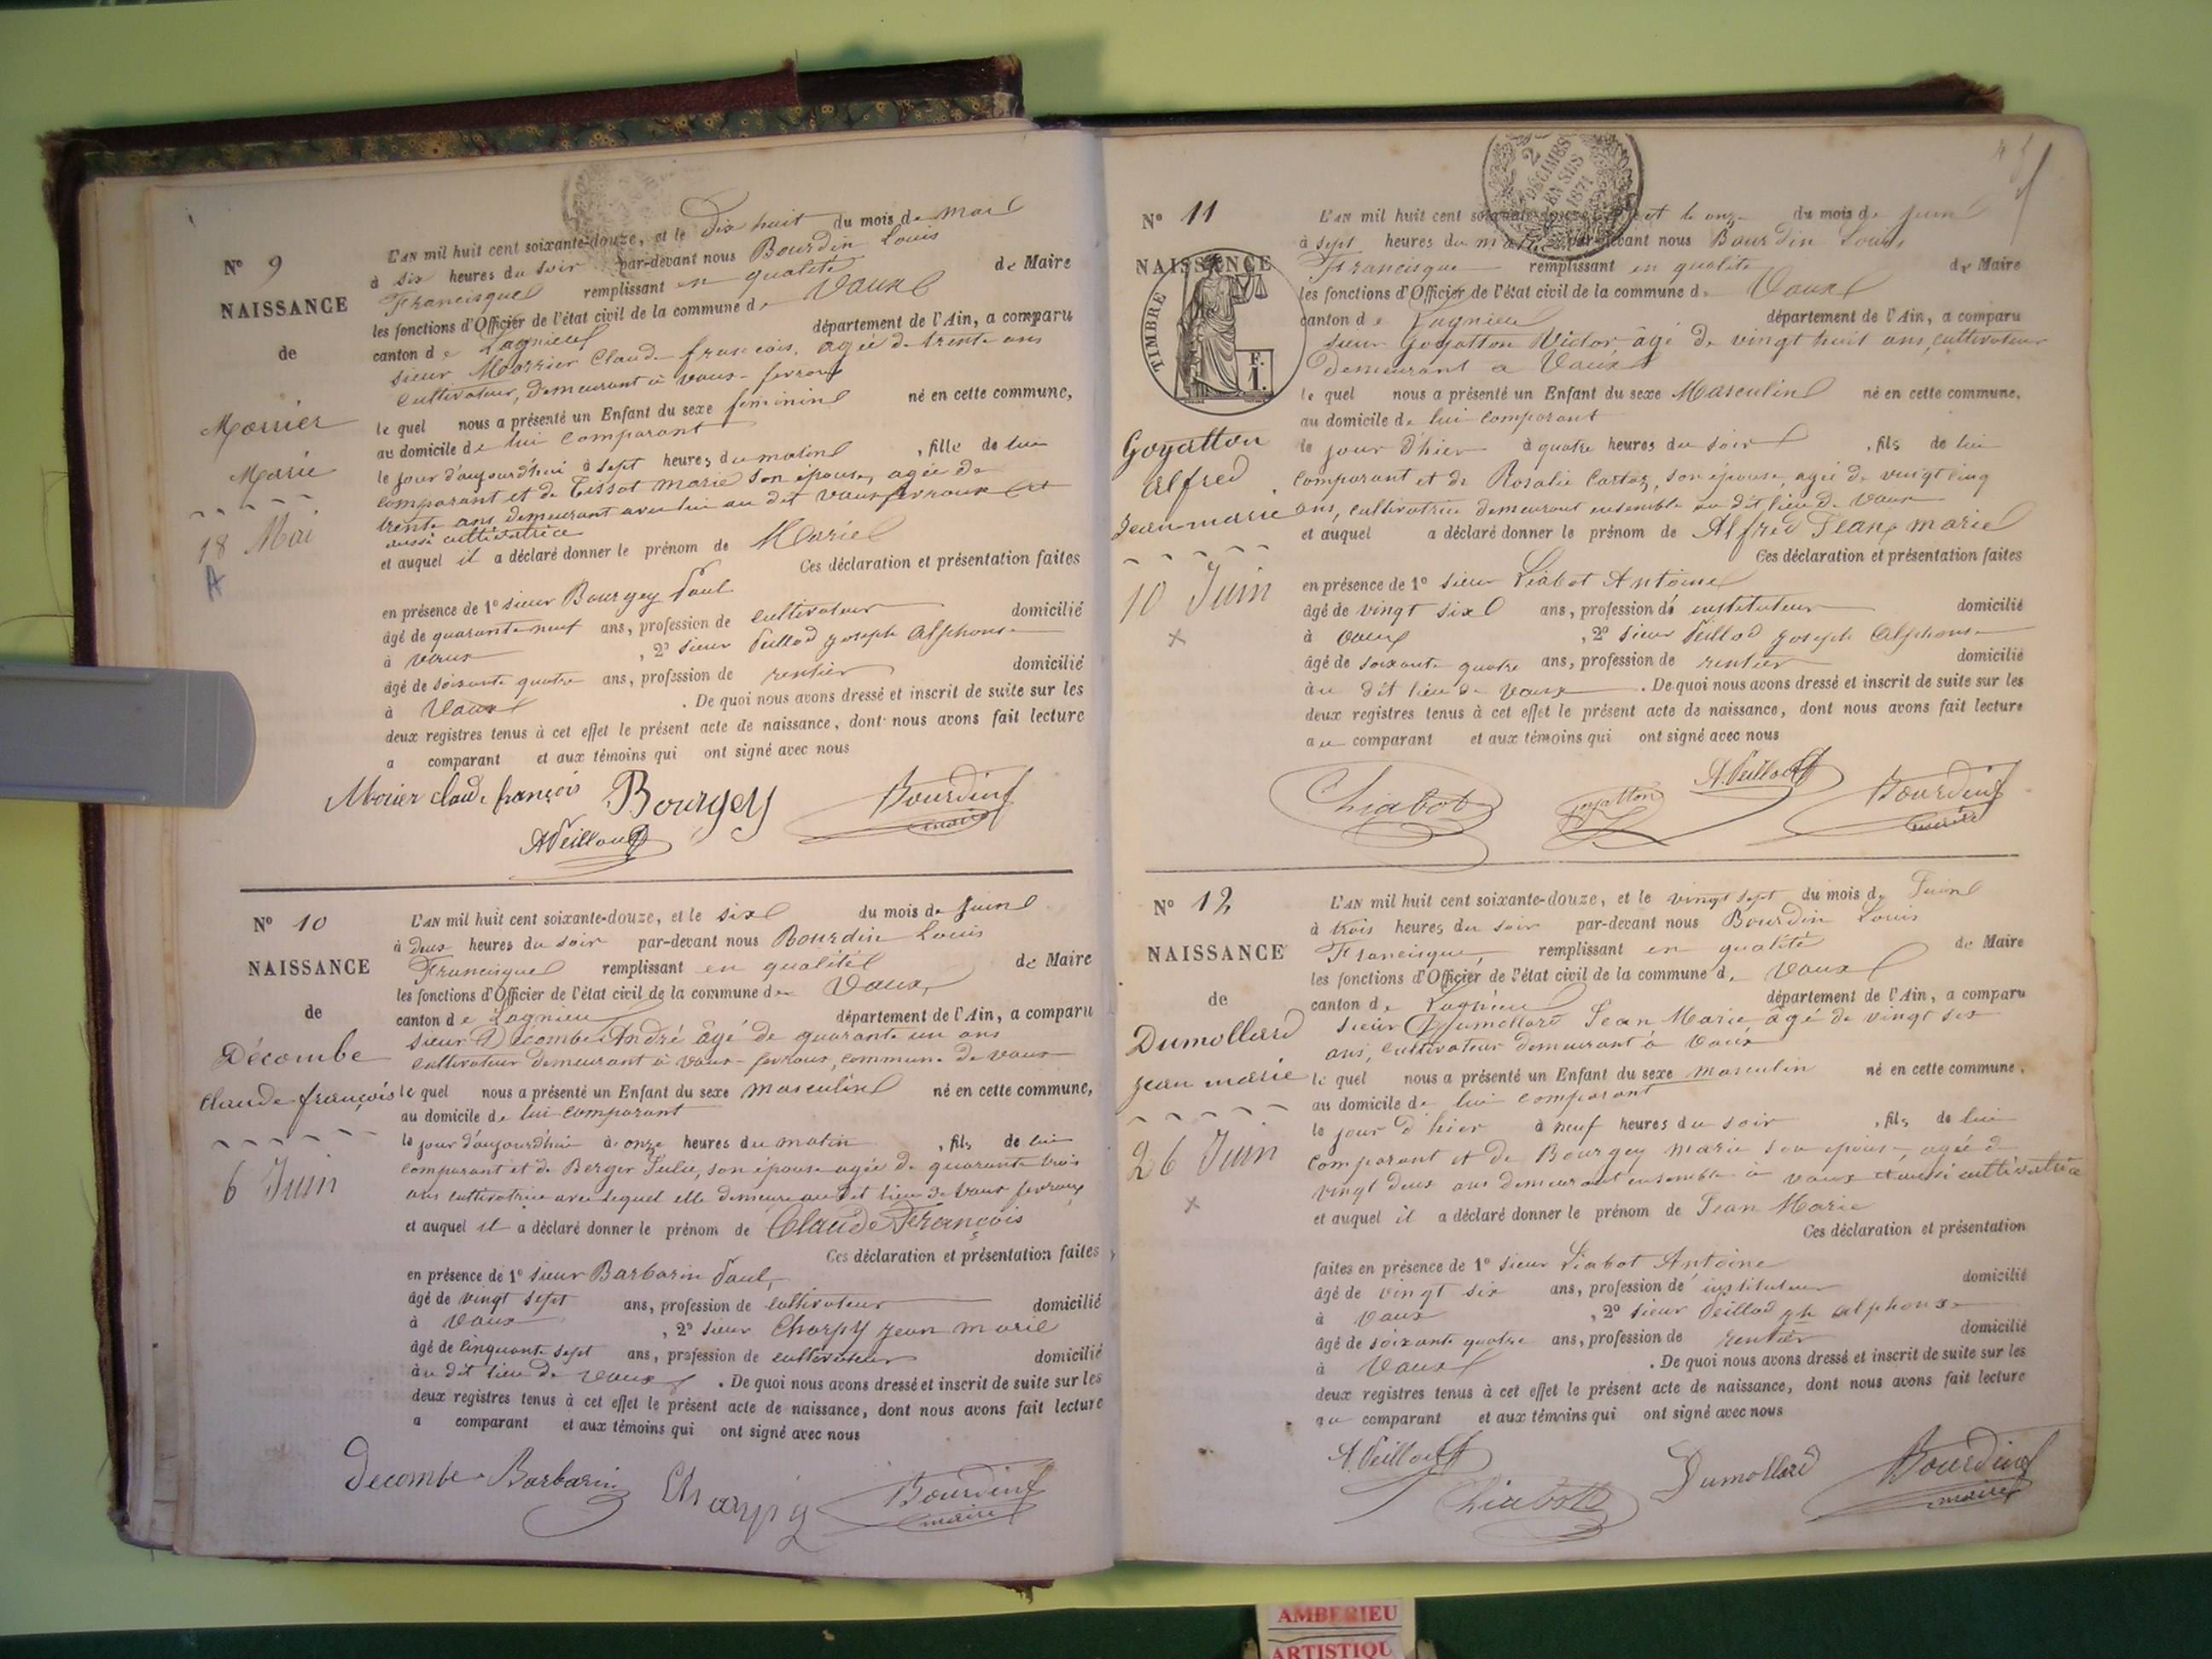 N° 9
NAISSANCE
de
Morrier
Marie
18 Mai
A
L'AN mil huit cent soixante-douze, et le Dix huit du mois de Mai
à six heures du soir par-devant nous Bourdin Louis
Francisque remplissant en qualité de Maire
les fonctions d'Officier de l'état civil de la commune de Vaux
canton de Lagnieu département de l'Ain, a comparu
sieur Morrier Claude françois, agé de trente ans
cultivateur, demeurant à vaux-fevroux
le quel nous a présenté un Enfant du sexe feminin né en cette commune,
au domicile de lui comparant
le jour d'aujourd'hui à sept heures du matin, fille de lui
comparant et de Tissot marie son épouse, agée de
trente ans demeurant avec lui au dit vaux fevroux et
aussi cultivatrice
et auquel il a déclaré donner le prénom de Marie
Ces déclaration et présentation faites
en présence de 1° sieur Bourgey Paul
âgé de quarante neuf ans, profession de cultivateur domicilié
à vaux, 2° sieur Peillod joseph Alphonse
âgé de soixante quatre ans, profession de rentier domicilié
à Vaux. De quoi nous avons dressé et inscrit de suite sur les
deux registres tenus à cet effet le présent acte de naissance, dont nous avons fait lecture
a comparant et aux témoins qui ont signé avec nous
Morier claude françois Bourgey Bourdin
maire
A Peilloud
N° 10
NAISSANCE
de
Décombe
Claude françois
6 Juin
L'AN mil huit cent soixante-douze, et le six du mois de Juin
à deux heures du soir par-devant nous Bourdin Louis
Francisque remplissant en qualité de Maire
les fonctions d'Officier de l'état civil de la commune de Vaux
canton de Lagnieu département de l'Ain, a comparu
sieur Décombe André âgé de quarante un ans
cultivateur demeurant à vaux-fevroux, commune de vaux
le quel nous a présenté un Enfant du sexe masculin né en cette commune,
au domicile de lui comparant
le jour d'aujourd'hui à onze heures du matin, fils de lui
comparant et de Berger Julie, son épouse agée de quarante trois
ans cultivatrice avec lequel elle demeure au dit lieu de vaux fevroux
et auquel il a déclaré donner le prénom de Claude François
Ces déclaration et présentation faites
en présence de 1° sieur Barbarin Paul,
âgé de vingt sept ans, profession de cultivateur domicilié
à vaux, 2° sieur Charpy jean marie
âgé de cinquante sept ans, profession de cultivateur domicilié
au dit lieu de vaux. De quoi nous avons dressé et inscrit de suite sur les
deux registres tenus à cet effet le présent acte de naissance, dont nous avons fait lecture
a comparant et aux témoins qui ont signé avec nous
Decombe Barbarin Charpy Bourdin
maire
N° 11
NAISSANCE
TIMBRE
F.
1.
2
DÉCIMES
EN SUS
1871
Goyatton
Alfred
Jean marie
10 Juin
L'AN mil huit cent soixante-douze, et le onze du mois de Juin
à sept heures du matin par-devant nous Bourdin Louis
Francisque remplissant en qualité de Maire
les fonctions d'Officier de l'état civil de la commune de Vaux
canton de Lagnieu département de l'Ain, a comparu
sieur Goyatton Victor, âgé de vingt huit ans, cultivateur
demeurant a Vaux
le quel nous a présenté un Enfant du sexe Masculin né en cette commune,
au domicile de lui comparant
le jour d'hier à quatre heures du soir, fils de lui
comparant et de Rosalie Cartoz, son épouse, agée de vingt cinq
ans, cultivatrice demeurant ensemble au dit lieu de Vaux
et auquel a déclaré donner le prénom de Alfred Jean marie
Ces déclaration et présentation faites
en présence de 1° sieur Liabot Antoine
âgé de vingt six ans, profession d'instituteur domicilié
à vaux, 2° sieur Peillod joseph Alphonse
âgé de soixante quatre ans, profession de rentier domicilié
au dit lieu de vaux. De quoi nous avons dressé et inscrit de suite sur les
deux registres tenus à cet effet le présent acte de naissance, dont nous avons fait lecture
au comparant et aux témoins qui ont signé avec nous
A. Peilloud
Liabot goyatton Bourdin
maire
N° 12
NAISSANCE
de
Dumollard
jean marie
26 Juin
L'AN mil huit cent soixante-douze, et le vingt sept du mois de Juin
à trois heures du soir par-devant nous Bourdin Louis
Francisque, remplissant en qualité de Maire
les fonctions d'Officier de l'état civil de la commune de Vaux
canton de Lagnieu département de l'Ain, a comparu
sieur Dumollard Jean Marie, âgé de vingt six
ans, cultivateur demeurant à Vaux
le quel nous a présenté un Enfant du sexe masculin né en cette commune,
au domicile de lui comparant
le jour d'hier à neuf heures du soir, fils de lui
comparant et de Bourgey marie son épouse, agée de
vingt deux ans demeurant ensemble à vaux et aussi cultivatrice
et auquel il a déclaré donner le prénom de Jean Marie
Ces déclaration et présentation
faites en présence de 1° sieur Liabot Antoine
âgé de vingt six ans, profession d'instituteur domicilié
à vaux, 2° sieur Peillod jph alphonse
âgé de soixante quatre ans, profession de rentier domicilié
à Vaux. De quoi nous avons dressé et inscrit de suite sur les
deux registres tenus à cet effet le présent acte de naissance, dont nous avons fait lecture
au comparant et aux témoins qui ont signé avec nous
A. Peilloud Liabot Dumollard Bourdin
maire
AMBERIEU
ARTISTIQU